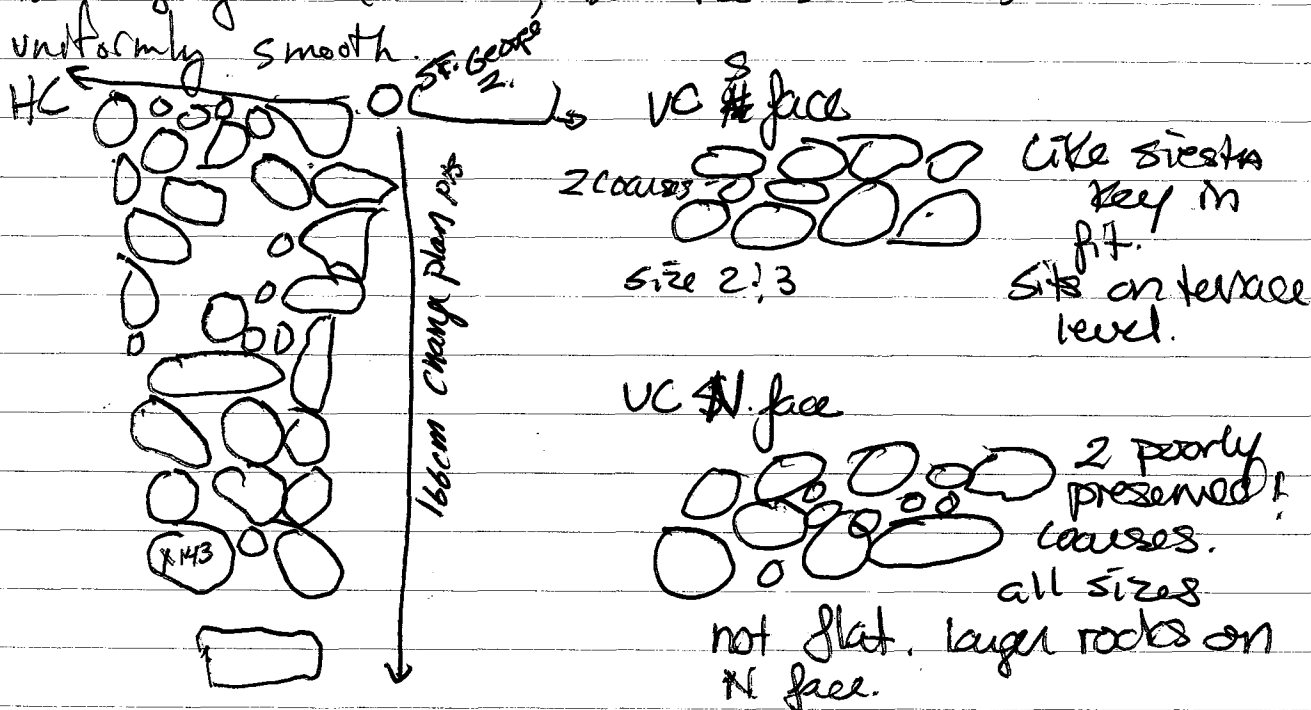 uniformly smooth.
HC
St. George
2.
166cm change plan pts
x143
VC S face
2 courses
size 2 ; 3
Like siesta
key in
fit.
sits on terrace
level.
VC N. face
2 poorly
preserved
courses.
all sizes
not flat. larger rocks on
N face.